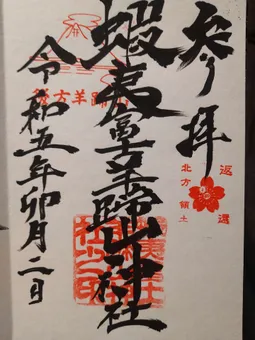 参拝
蝦夷富士羊蹄山神社
令和五年卯月二日
後方羊蹄山
返還
北方領土